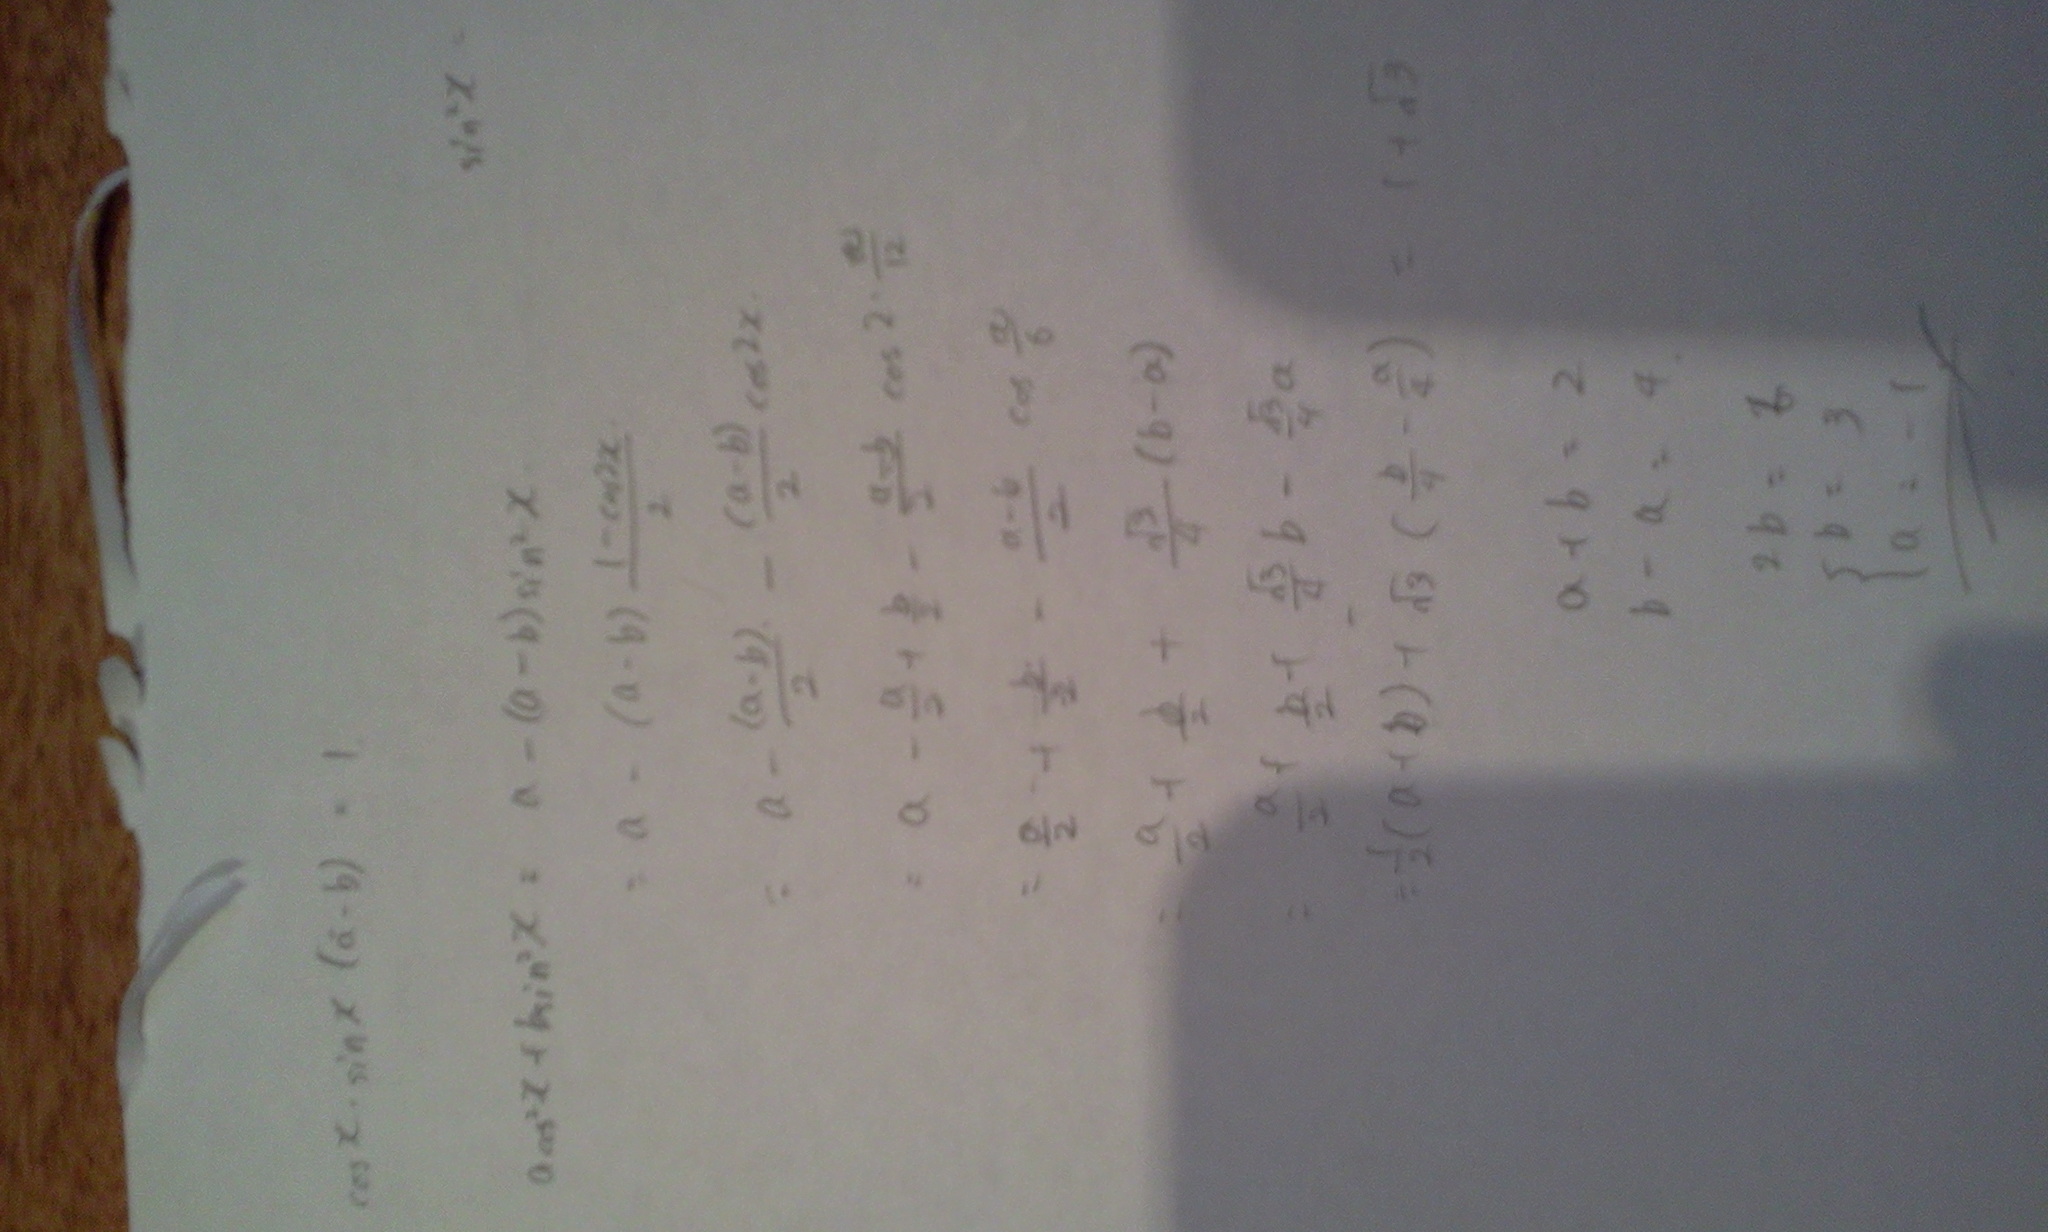 cos x · sin x (a-b) = 1
sin²x =
a cos²x + b sin²x = a - (a-b) sin²x.
= a - (a-b) \frac{1-cos2x}{2}
= a - \frac{(a-b)}{2} - \frac{(a-b)}{2} cos2x.
= a - \frac{a}{2} + \frac{b}{2} - \frac{a-b}{2} cos 2 · \frac{π}{12}
= \frac{a}{2} + \frac{b}{2} - \frac{a-b}{2} cos \frac{π}{6}
= \frac{a}{2} + \frac{b}{2} + \frac{√3}{4} (b-a)
= \frac{a}{2} + \frac{b}{2} + \frac{√3}{4} b - \frac{√3}{4} a
= \frac{1}{2} (a+b) + √3 (\frac{b}{4} - \frac{a}{4}) = 1 + √3
a + b = 2
b - a = 4.
2b = 6
{ b = 3
a = -1